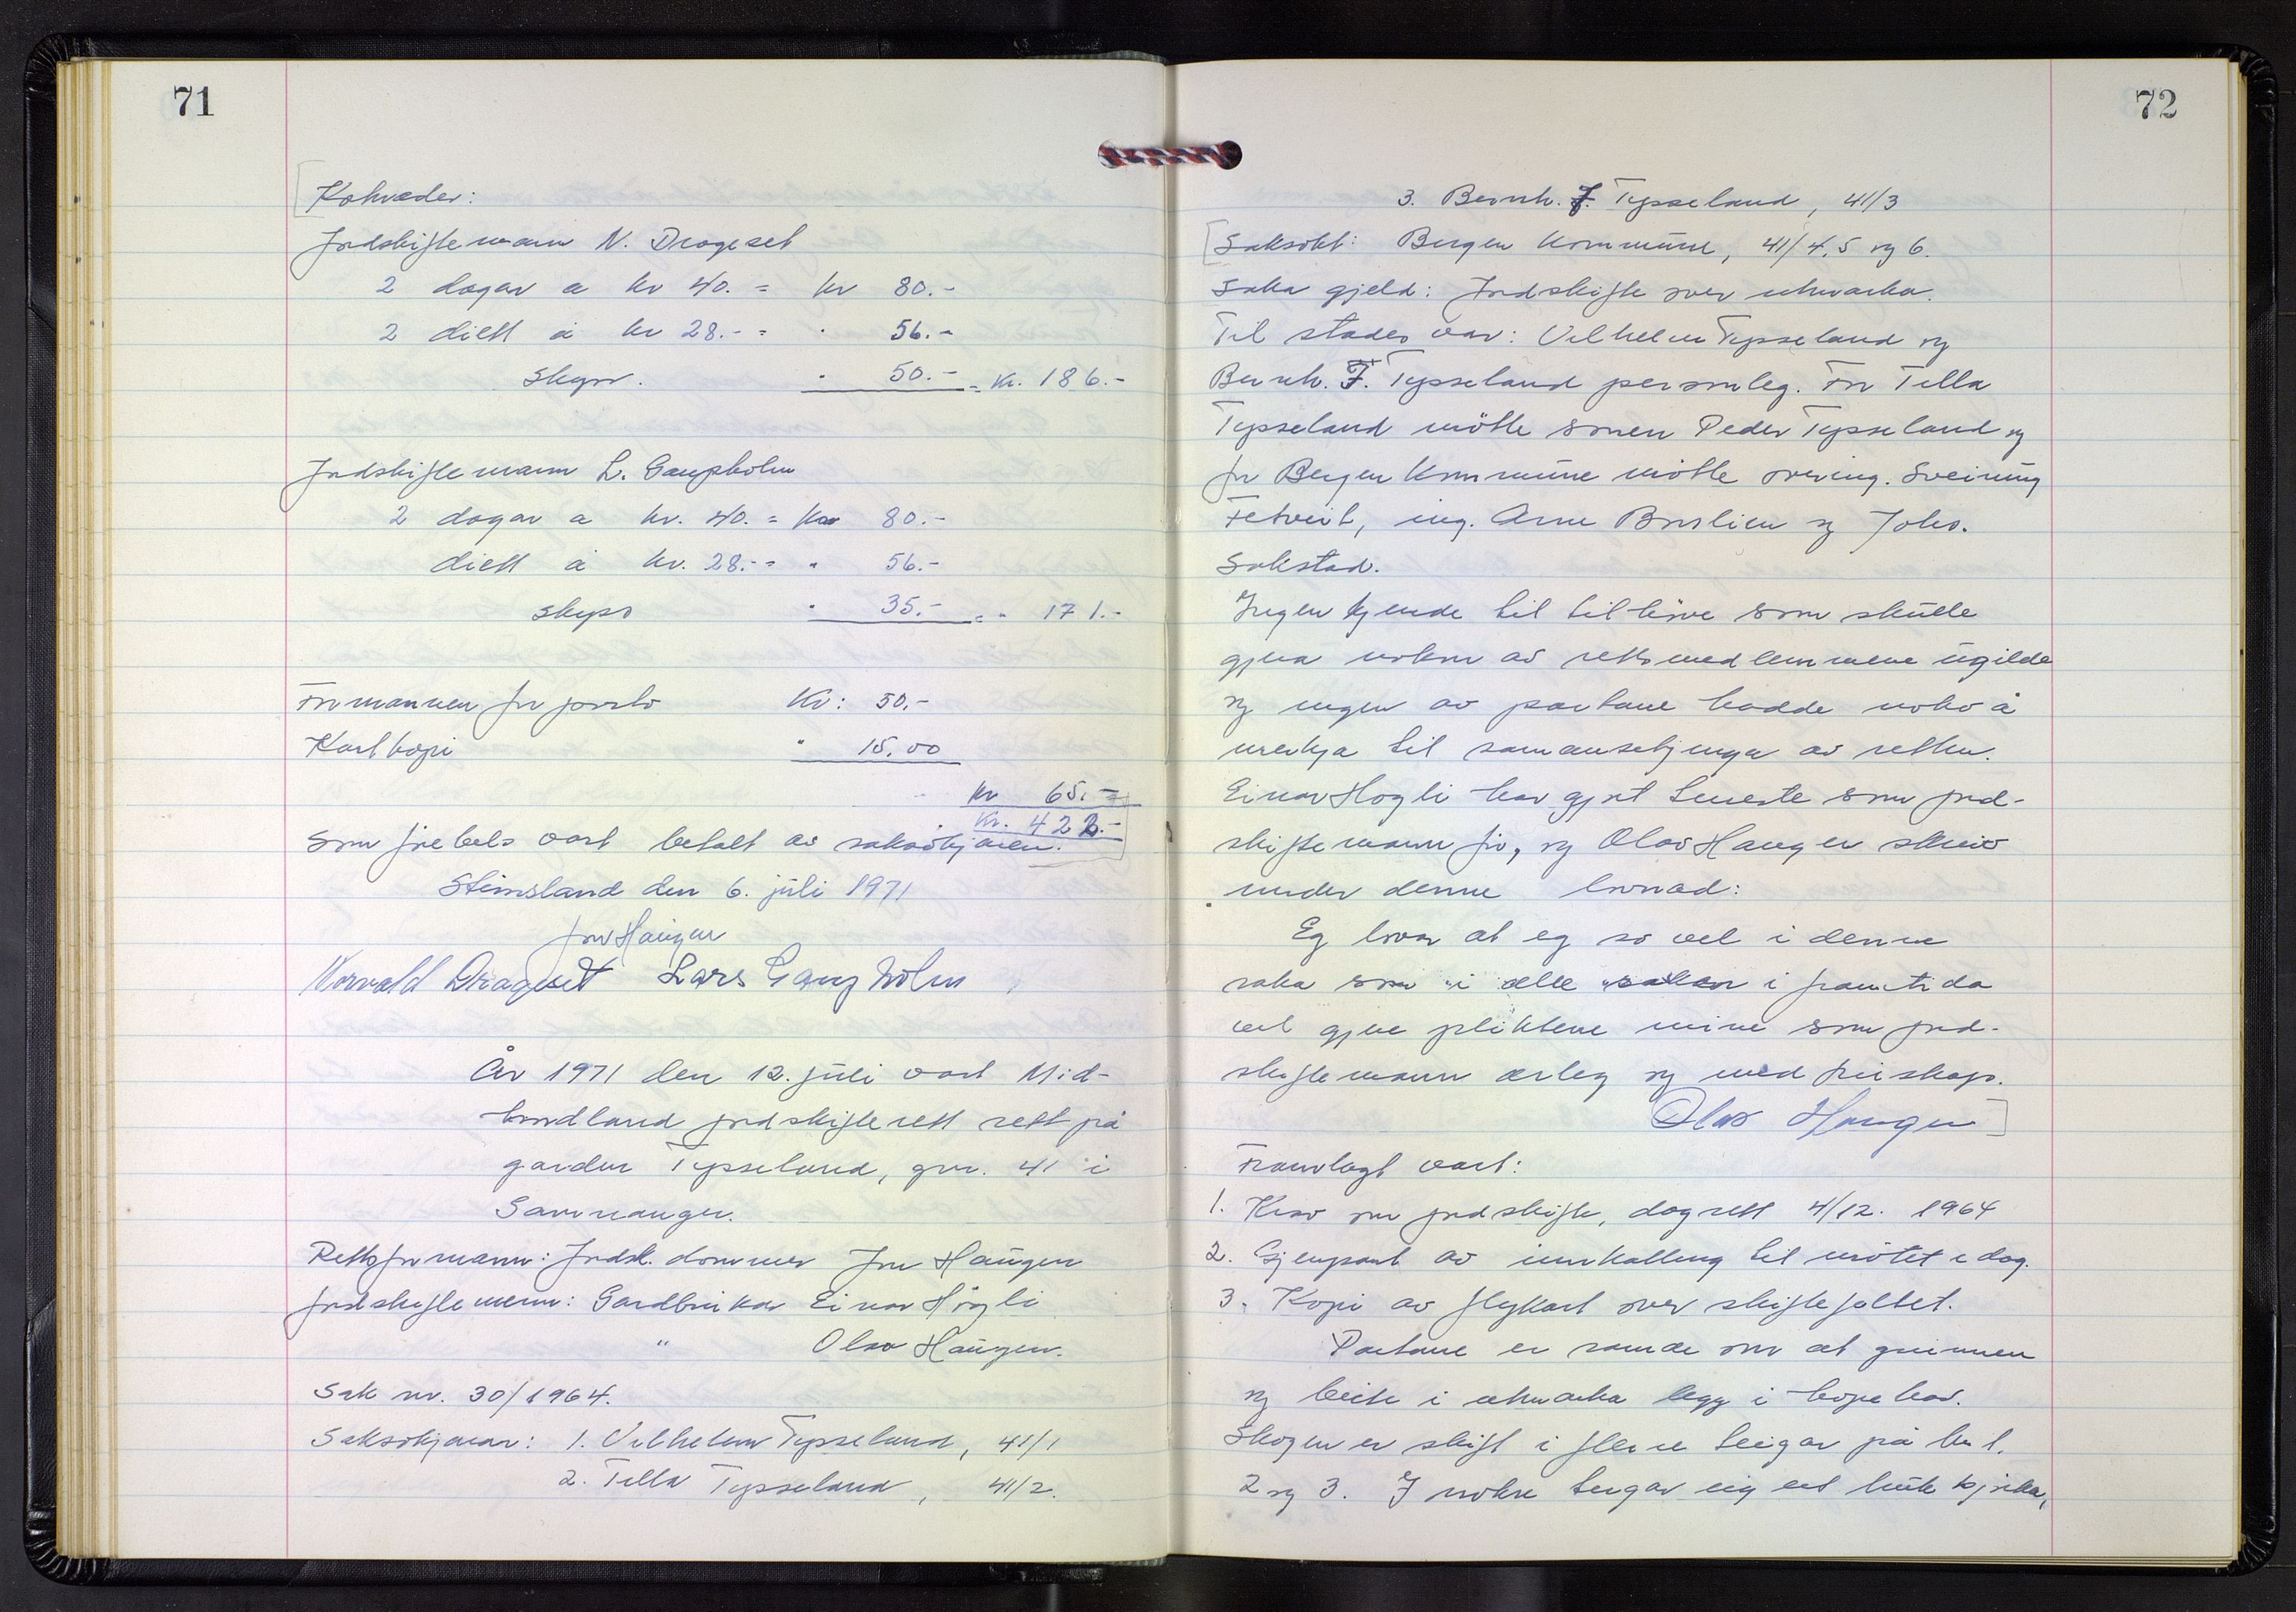 71
[Kostnader:
Jordskiftemann N. Drageset
2 dagar a kr 40. = kr 80.-
2 diett á kr 28.- = " 56.-
Skyss. " 50.- = Kr. 186.-
Jordskiftemann L. Gaupholm
2 dagar a kr. 40. = Kr 80.-
diett á kr. 28.- = " 56.-
skyss " 35.- = " 171.-
Formannen for porto Kr: 50.-
Kartkopi " 15.00
kr 65.-
Kr. 422.-
Som førebels vart betalt av saksökjaren.]
Steinsland den 6. júli 1971
Jon Haugen
Norvald Drageset Lars Gaupholm
År 1971 den 12. júli vart Mid-
hordland jordskifterett sett på
garden Tysseland, gnr. 41 i
Samnanger.
Rettsformann: Jordsk. dommer Jon Haúgen
Jordskiftemenn: Gardbrukar Einar Högli
" Olav Haúgen.
Sak nr. 30/1964.
Saksökjarar: 1. Vilhelm Tysseland, 41/1
2. Tilla Tysseland, 41/2.
72
3. Bernh. F. Tysseland, 41/3
[Saksökt: Bergen kommúne, 41/4,5 og 6.
Saka gjeld: Jordskifte over utmarka.
Til stades var: Vilhelm Tysseland og
Bernh. F. Tysseland personleg. For Tilla
Tysseland mötte sonen Peder Tysseland og
for Bergen kommúne mötte overing. Sveinúng
Tetveit, ing. Arne Borslien og Johs.
Sakstad.
Ingen kjende til tilhöve som skúlle
gjera nokon av rettsmedlemmene úgilde
og ingen av partane hadde noko å
merkja til samansetjinga av retten.
Einar Högli har gjort teneste som jord-
skiftemann för, og Olav Haugen skreiv
under denne lovnad:
Eg lovar at eg so vel i denne
saka som i alle saker i framtida
vil gjere pliktene mine som jord-
skiftemann ærleg og med truskap.
Olav Haugen]
Framlagt vart:
1. Krav om jordskifte, dagsett 4/12. 1964
2. Gjenpart av innkalling til mötet i dag.
3. Kopi av flykart over skiftefeltet.
Partane er samde om at grunnen
og beite i utmarka ligg i hopehav.
Skogen er skift i fleire teigar på bnr 1,
2 og 3. I nokre teigar eig eit brúk bjørka,